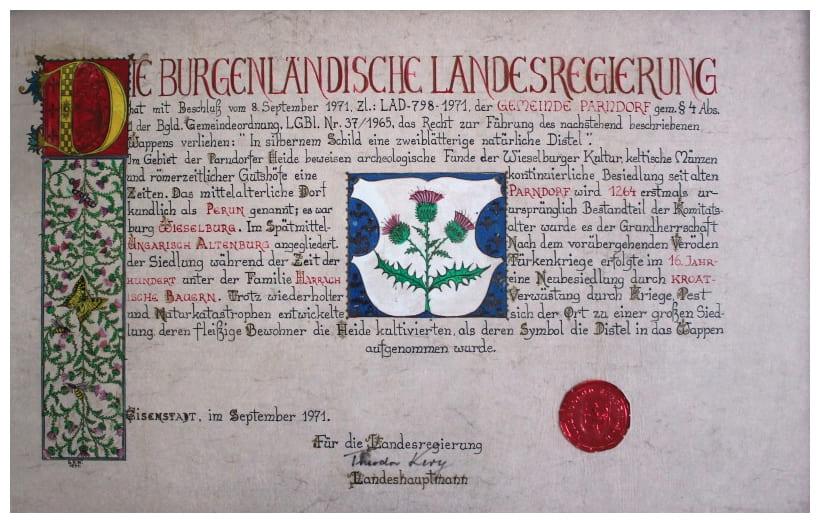 DIE BURGENLÄNDISCHE LANDESREGIERUNG
hat mit Beschluß vom 8. September 1971, Zl.: LAD-798-1971, der GEMEINDE PARNDORF gem. § 4 Abs.
1 der Bgld. Gemeindeordnung, LGBl. Nr. 37/1965, das Recht zur Führung des nachstehend beschriebenen
Wappens verliehen: "In silbernem Schild eine zweiblätterige natürliche Distel".
Im Gebiet der Parndorfer Heide beweisen archeologische Funde der Wieselburger Kultur, keltische Münzen
und römerzeitlicher Gutshöfe eine kontinuierliche Besiedlung seit alten
Zeiten. Das mittelalterliche Dorf PARNDORF wird 1264 erstmals ur-
kundlich als PERUN genannt; es war ursprünglich Bestandteil der Komitats-
burg WIESELBURG. Im Spätmittel- alter wurde es der Grundherrschaft
UNGARISCH ALTENBURG angegliedert. Nach dem vorübergehenden Veröden
der Siedlung während der Zeit der Türkenkriege erfolgte im 16. JAHR-
HUNDERT unter der Familie HARRACH eine Neubesiedlung durch KROAT-
ISCHE BAUERN. Trotz wiederholter Verwüstung durch Kriege, Pest
und Naturkatastrophen entwickelte sich der Ort zu einer großen Sied-
lung, deren fleißige Bewohner die Heide kultivierten, als deren Symbol die Distel in das Wappen
aufgenommen wurde.
EISENSTADT, im September 1971.
Für die Landesregierung
Theodor Kery
Landeshauptmann